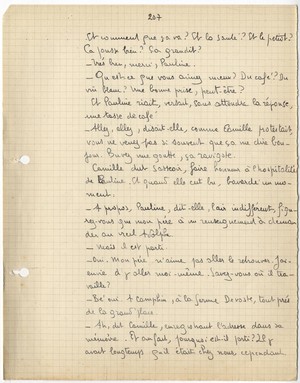 207
Et comment que ça va ? Et la santé ? Et le petiot ?
Ça pousse bien ? Ça grandit ?
— Très bien, merci, Pauline.
— Qu'est-ce que vous aimez mieux ? Du café ? Du
vin blanc ? Une bonne prise, peut-être ?
Et Pauline riait, versait, sans attendre la réponse,
une tasse de café
— Allez, allez, disait-elle, comme Camille protestait,
vous ne venez pas si souvent que ça me dire bon-
jour. Buvez une goutte, ça ravigote.
Camille dut s'asseoir, faire honneur à l'hospitalité
de Pauline. Et quand elle eut bu, bavardé un mo-
ment.
— A propos, Pauline, dit-elle, l'air indifférent, figu-
rez-vous que mon père a un renseignement à deman-
der au vieil
— Mais il est parti
— Oui. Mon père n'aime pas aller le retrouver. J'ai
envie d'y aller moi-même. Savez-vous où il tra-
vaille ?
— Bé oui. A Camphin, à la ferme, tout près
de la grand'place.
— Ah, dit Camille, enregistrant l'adresse dans sa
mémoire. Et au fait, pourquoi est-il parti ? Il y
avait longtemps qu'il était chez nous cependant